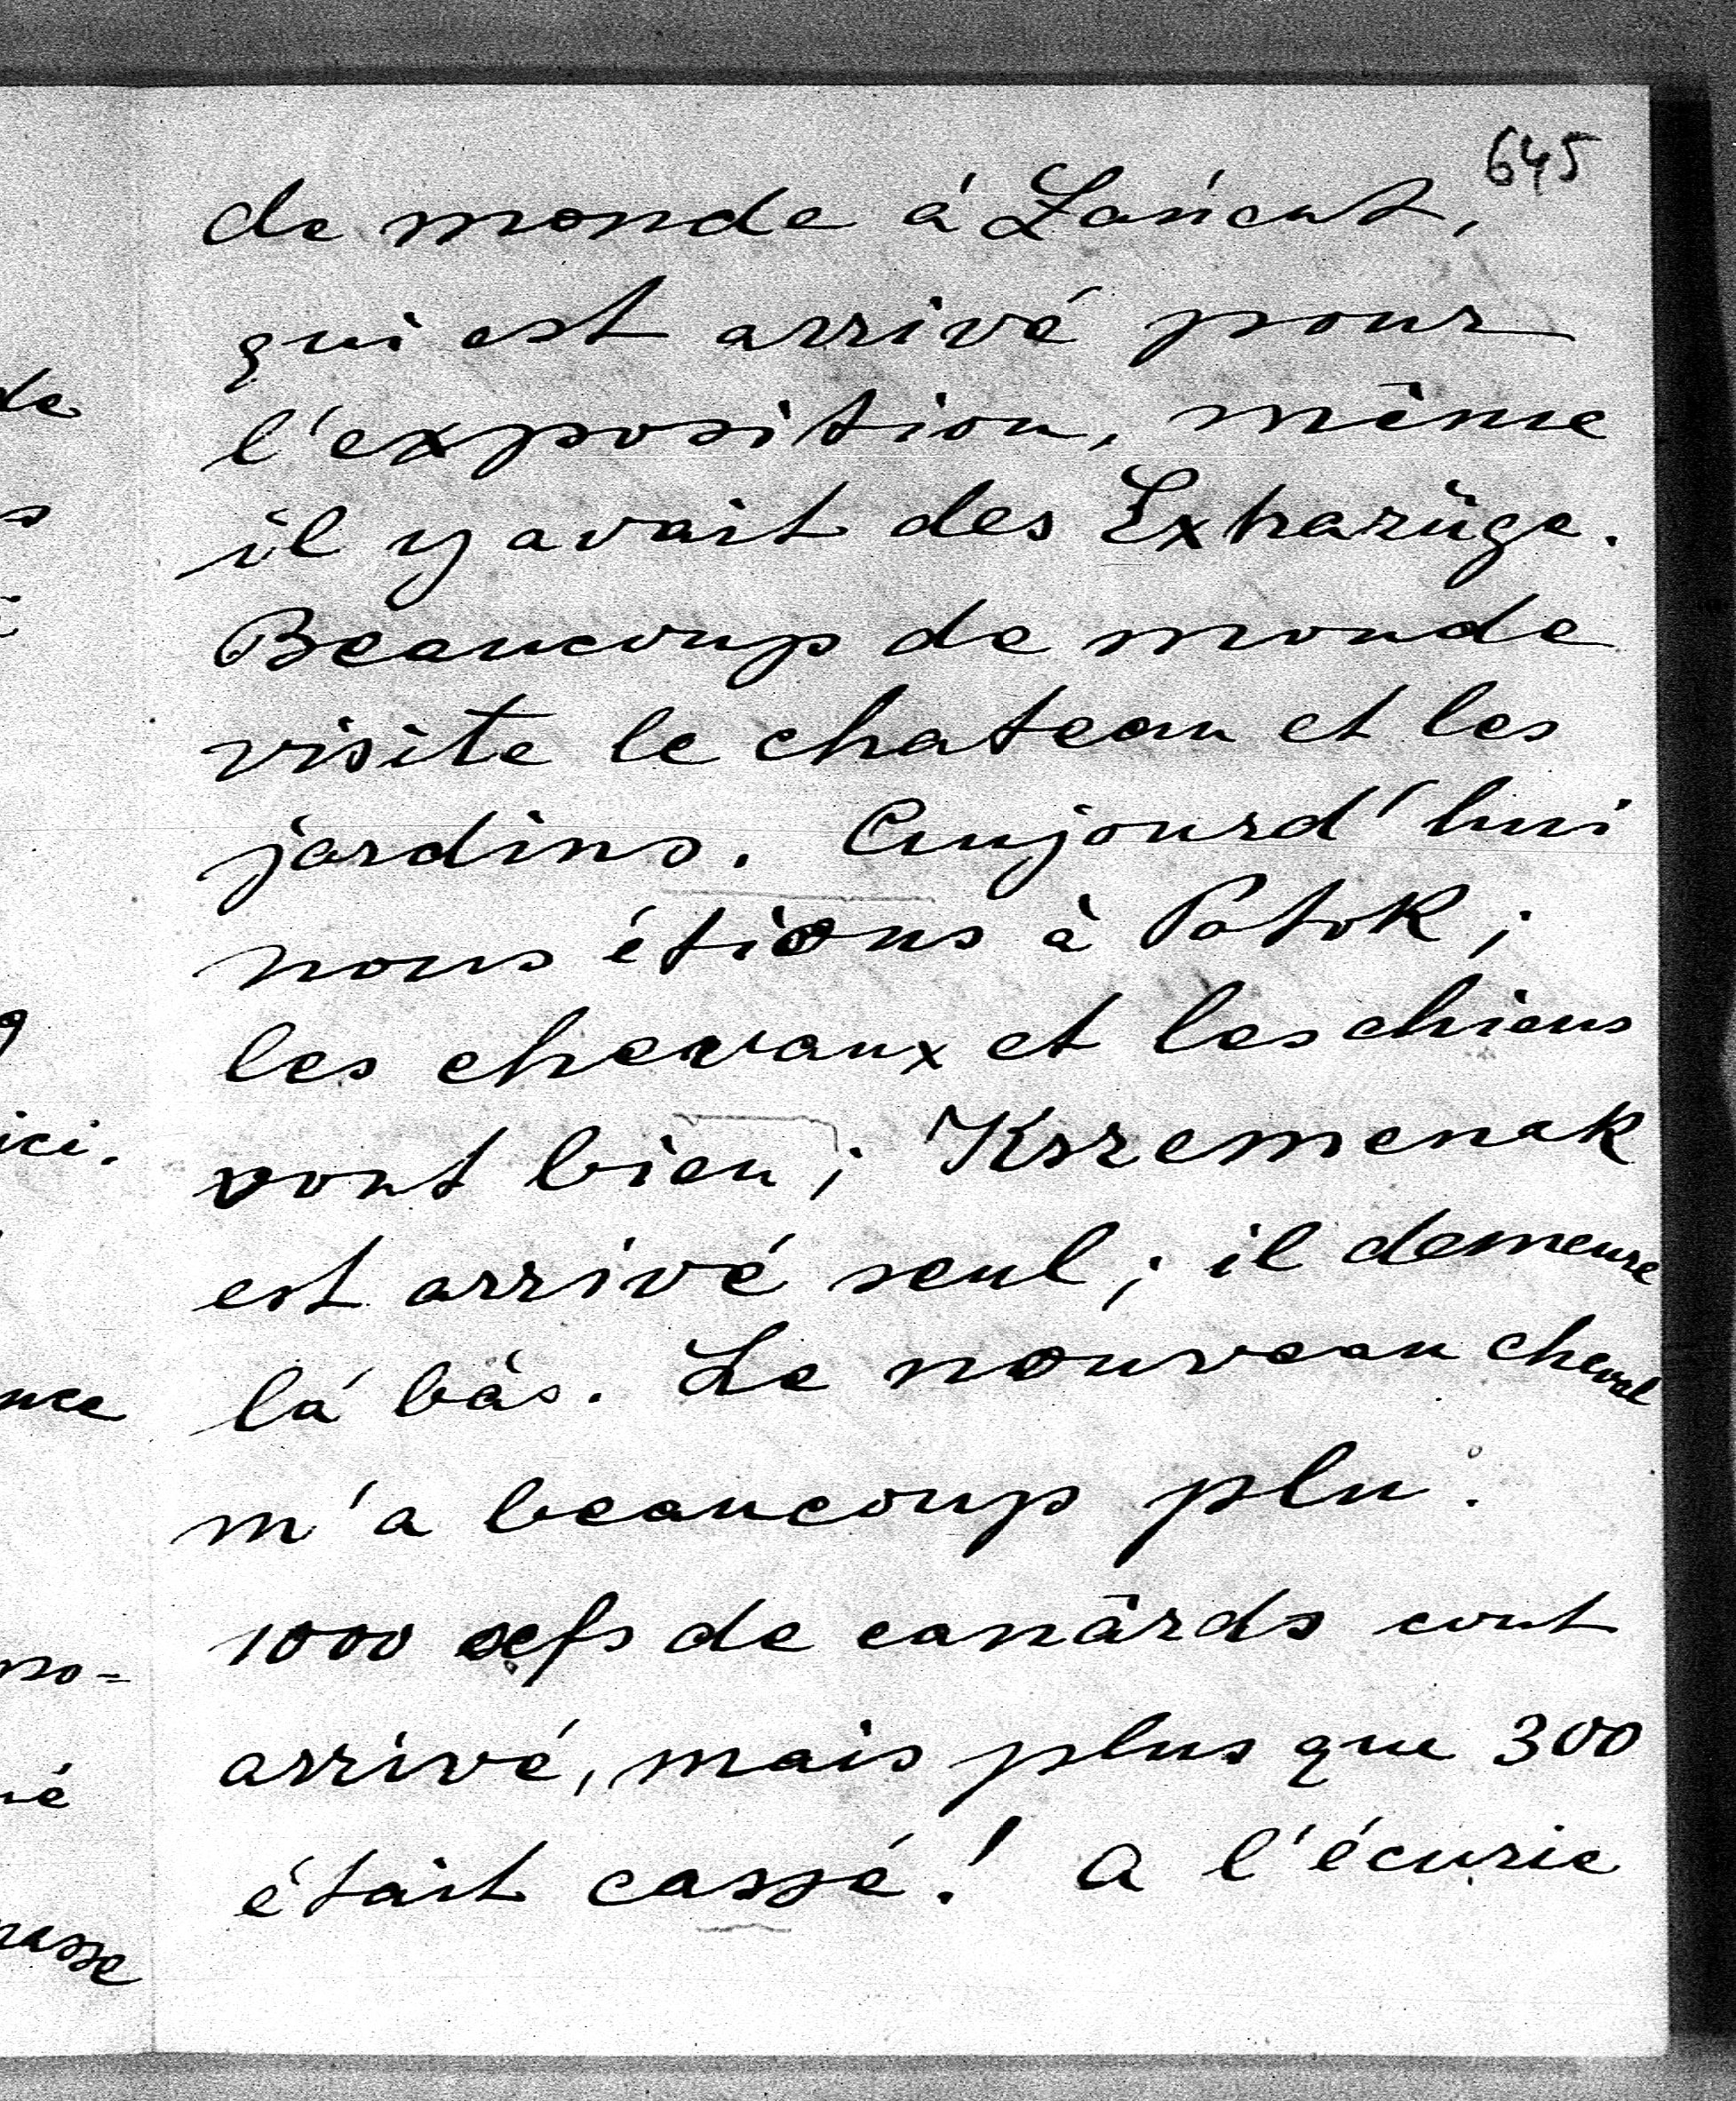 645
de monde á Łańcut,
qui est arrivé pour
l'exposition, même
il y avait des Extrazüge.
Beaucoup de monde
visite le chateau et les
jardins. Aujourd'hui
nous étions à Potok;
les chevaux et les chiens
vont bien; Krzemenak
est arrivé seul; il demeure
lá bàs. Le nouveau cheval
m'a beaucoup plu.
1000 oefs de canârds cont
arrivé, mais plus que 300
était cassé! A l'écurie
de
s
ici.
nce
no=
né
passe